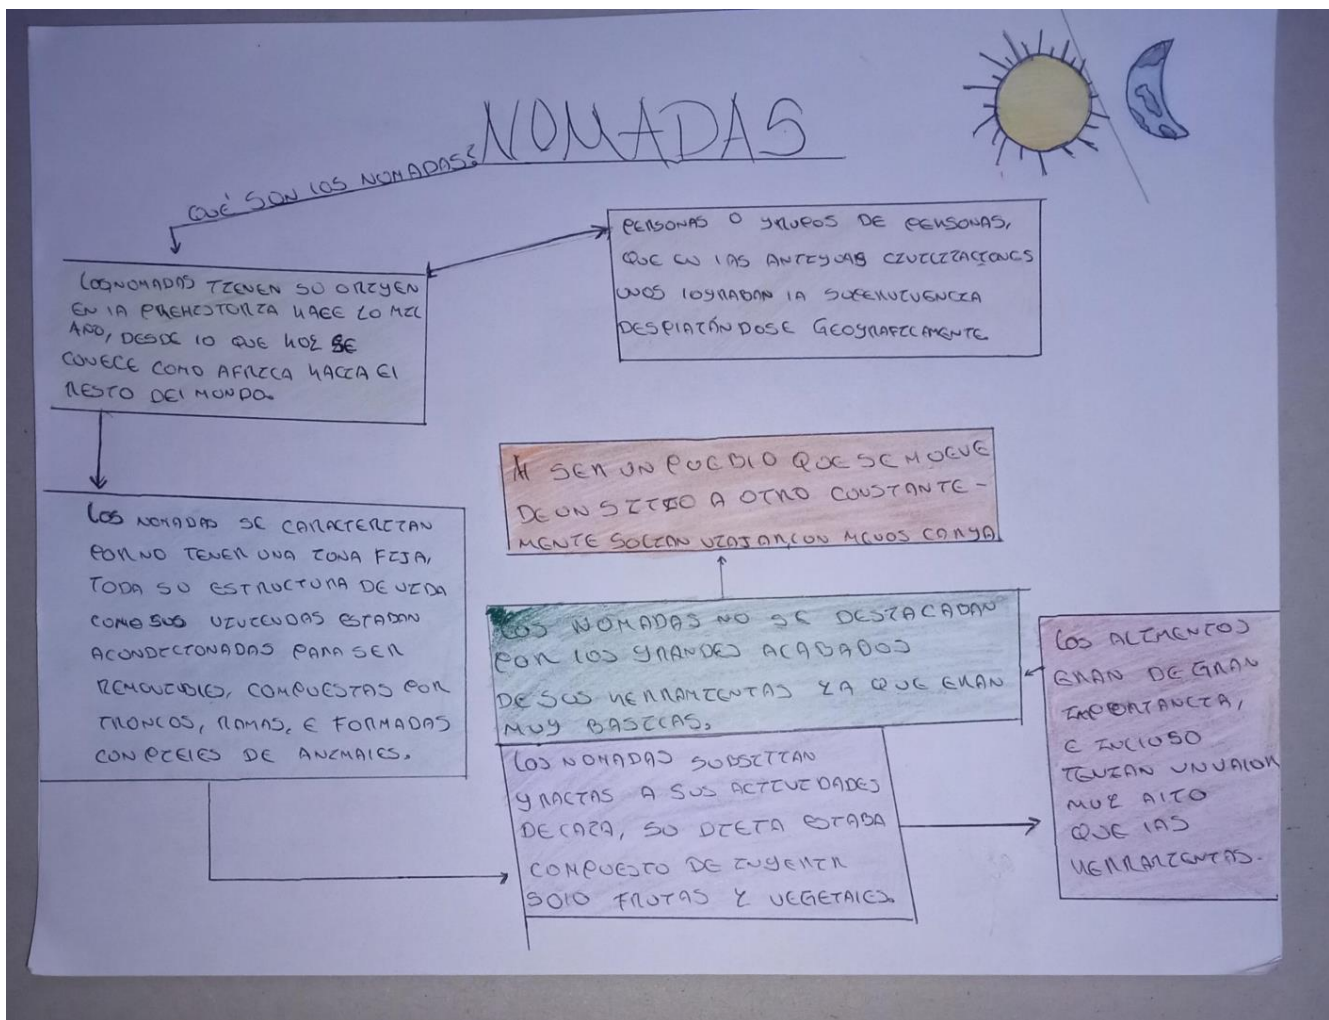 NOMADAS
QUÉ SON LOS NOMADAS?
PERSONAS O GRUPOS DE PERSONAS,
QUE EN LAS ANTIGUAS CIVILIZACIONES
UNOS LOGRABAN LA SUPERVIVENCIA
DESPLAZÁNDOSE GEOGRAFICAMENTE
LOS NOMADAS TIENEN SU ORIGEN
EN LA PREHISTORIA HACE 20 MIL
AÑO, DESDE LO QUE HOY SE
CONECE COMO AFRICA HACIA EL
RESTO DEL MUNDO.
LOS NOMADAS SE CARACTERIZAN
POR NO TENER UNA ZONA FIJA,
TODA SU ESTRUCTURA DE VIDA
COMO SUS VIVIENDAS ESTABAN
ACONDICIONADAS PARA SER
REMOVIBLES, COMPUESTAS POR
TRONCOS, RAMAS, E FORMADAS
CON PIELES DE ANIMALES.
AL SER UN PUEBLO QUE SE MUEVE
DE UN SITIO A OTRO CONSTANTE-
MENTE SOLIAN VIAJAR CON MENOS CARGA
LOS NOMADAS NO SE DESTACABAN
POR LOS GRANDES ACABADOS
DE SUS HERRAMIENTAS YA QUE ERAN
MUY BASICAS.
LOS NOMADAS SUBSITIAN
GRACIAS A SUS ACTIVIDADES
DE CAZA, SU DIETA ESTABA
COMPUESTO DE INGERIR
SOLO FRUTAS Y VEGETALES.
LOS ALIMENTOS
ERAN DE GRAN
IMPORTANCIA,
E INCLUSO
TENIAN UN VALOR
MUY ALTO
QUE LAS
HERRAMIENTAS.